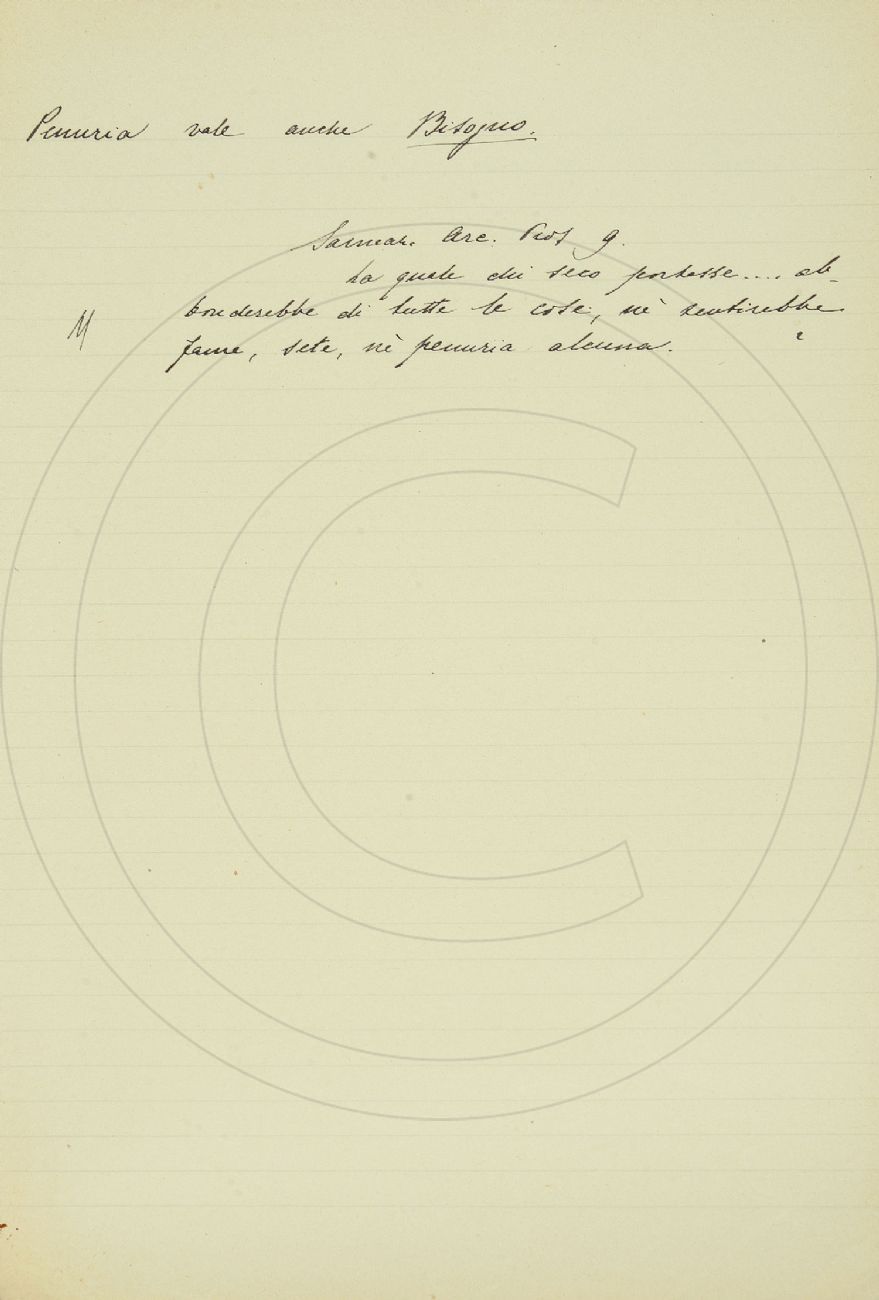 Penuria vale anche Bisogno.
Sannaz. Arc. Pros 9.
La quale chi seco portasse.... ab-
bonderebbe di tutte le cose, nè sentirebbe
fame, sete, nè penuria alcuna.